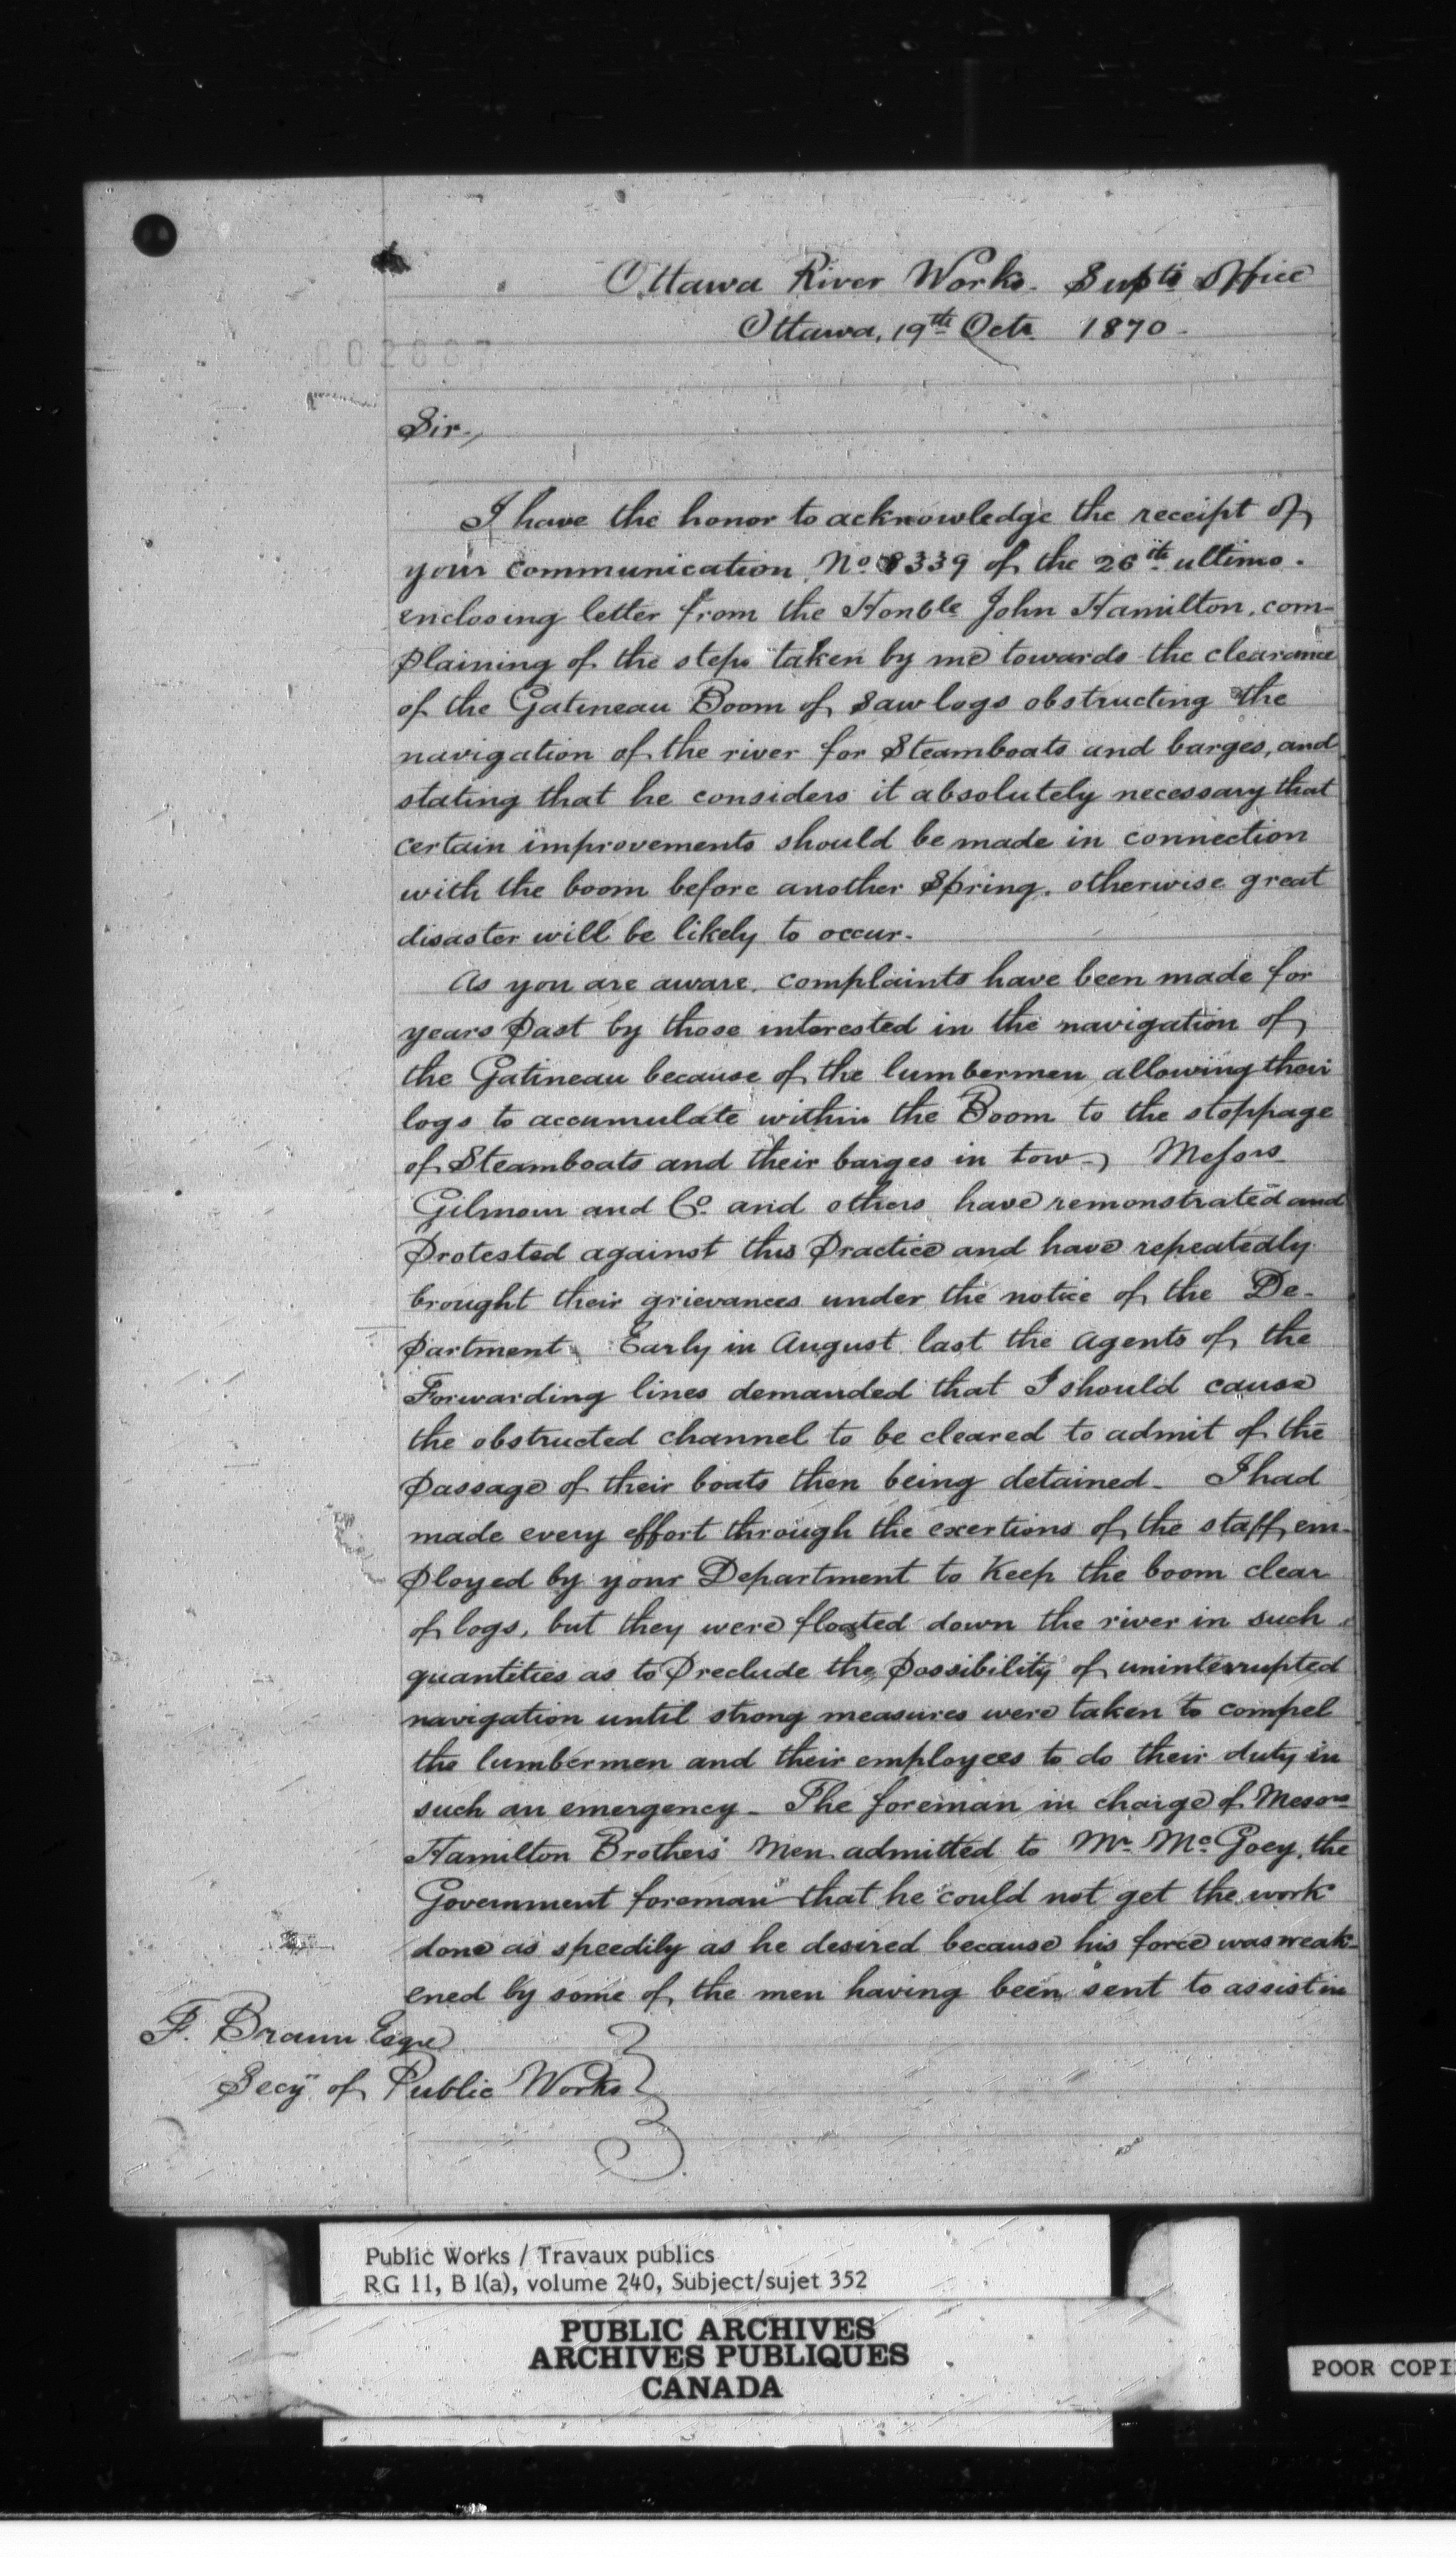 Ottawa River Works. Supts Office
Ottawa, 19th Octr. 1870.
Sir,
I have the honor to acknowledge the receipt of
your communication, No. 8339 of the 26th ultimo.
enclosing letter from the Honble John Hamilton, com-
plaining of the steps taken by me towards the clearance
of the Gatineau Boom of saw logs obstructing the
navigation of the river for Steamboats and barges, and
stating that he considers it absolutely necessary that
certain improvements should be made in connection
with the boom before another Spring, otherwise great
disaster will be likely to occur.
As you are aware, complaints have been made for
years past by those interested in the navigation of
the Gatineau because of the lumbermen allowing their
logs to accumulate within the Boom to the stoppage
of Steamboats and their barges in tow. Messrs
Gilmour and Co. and others have remonstrated and
protested against this practice and have repeatedly
brought their grievances under the notice of the De-
partment. Early in August last the agents of the
Forwarding lines demanded that I should cause
the obstructed channel to be cleared to admit of the
passage of their boats then being detained. I had
made every effort through the exertions of the staff em-
ployed by your Department to keep the boom clear
of logs, but they were floated down the river in such
quantities as to preclude the possibility of uninterrupted
navigation until strong measures were taken to compel
the lumbermen and their employees to do their duty in
such an emergency. The foreman in charge of Messrs
Hamilton Brothers' men admitted to Mr. McGoey, the
Government foreman that he could not get the work
done as speedily as he desired because his force was weak-
ened by some of the men having been sent to assist in
F. Braun Esqre
Secy. of Public Works
Public Works / Travaux publics
RG 11, B 1(a), volume 240, Subject/sujet 352
PUBLIC ARCHIVES
ARCHIVES PUBLIQUES
CANADA
POOR COPI